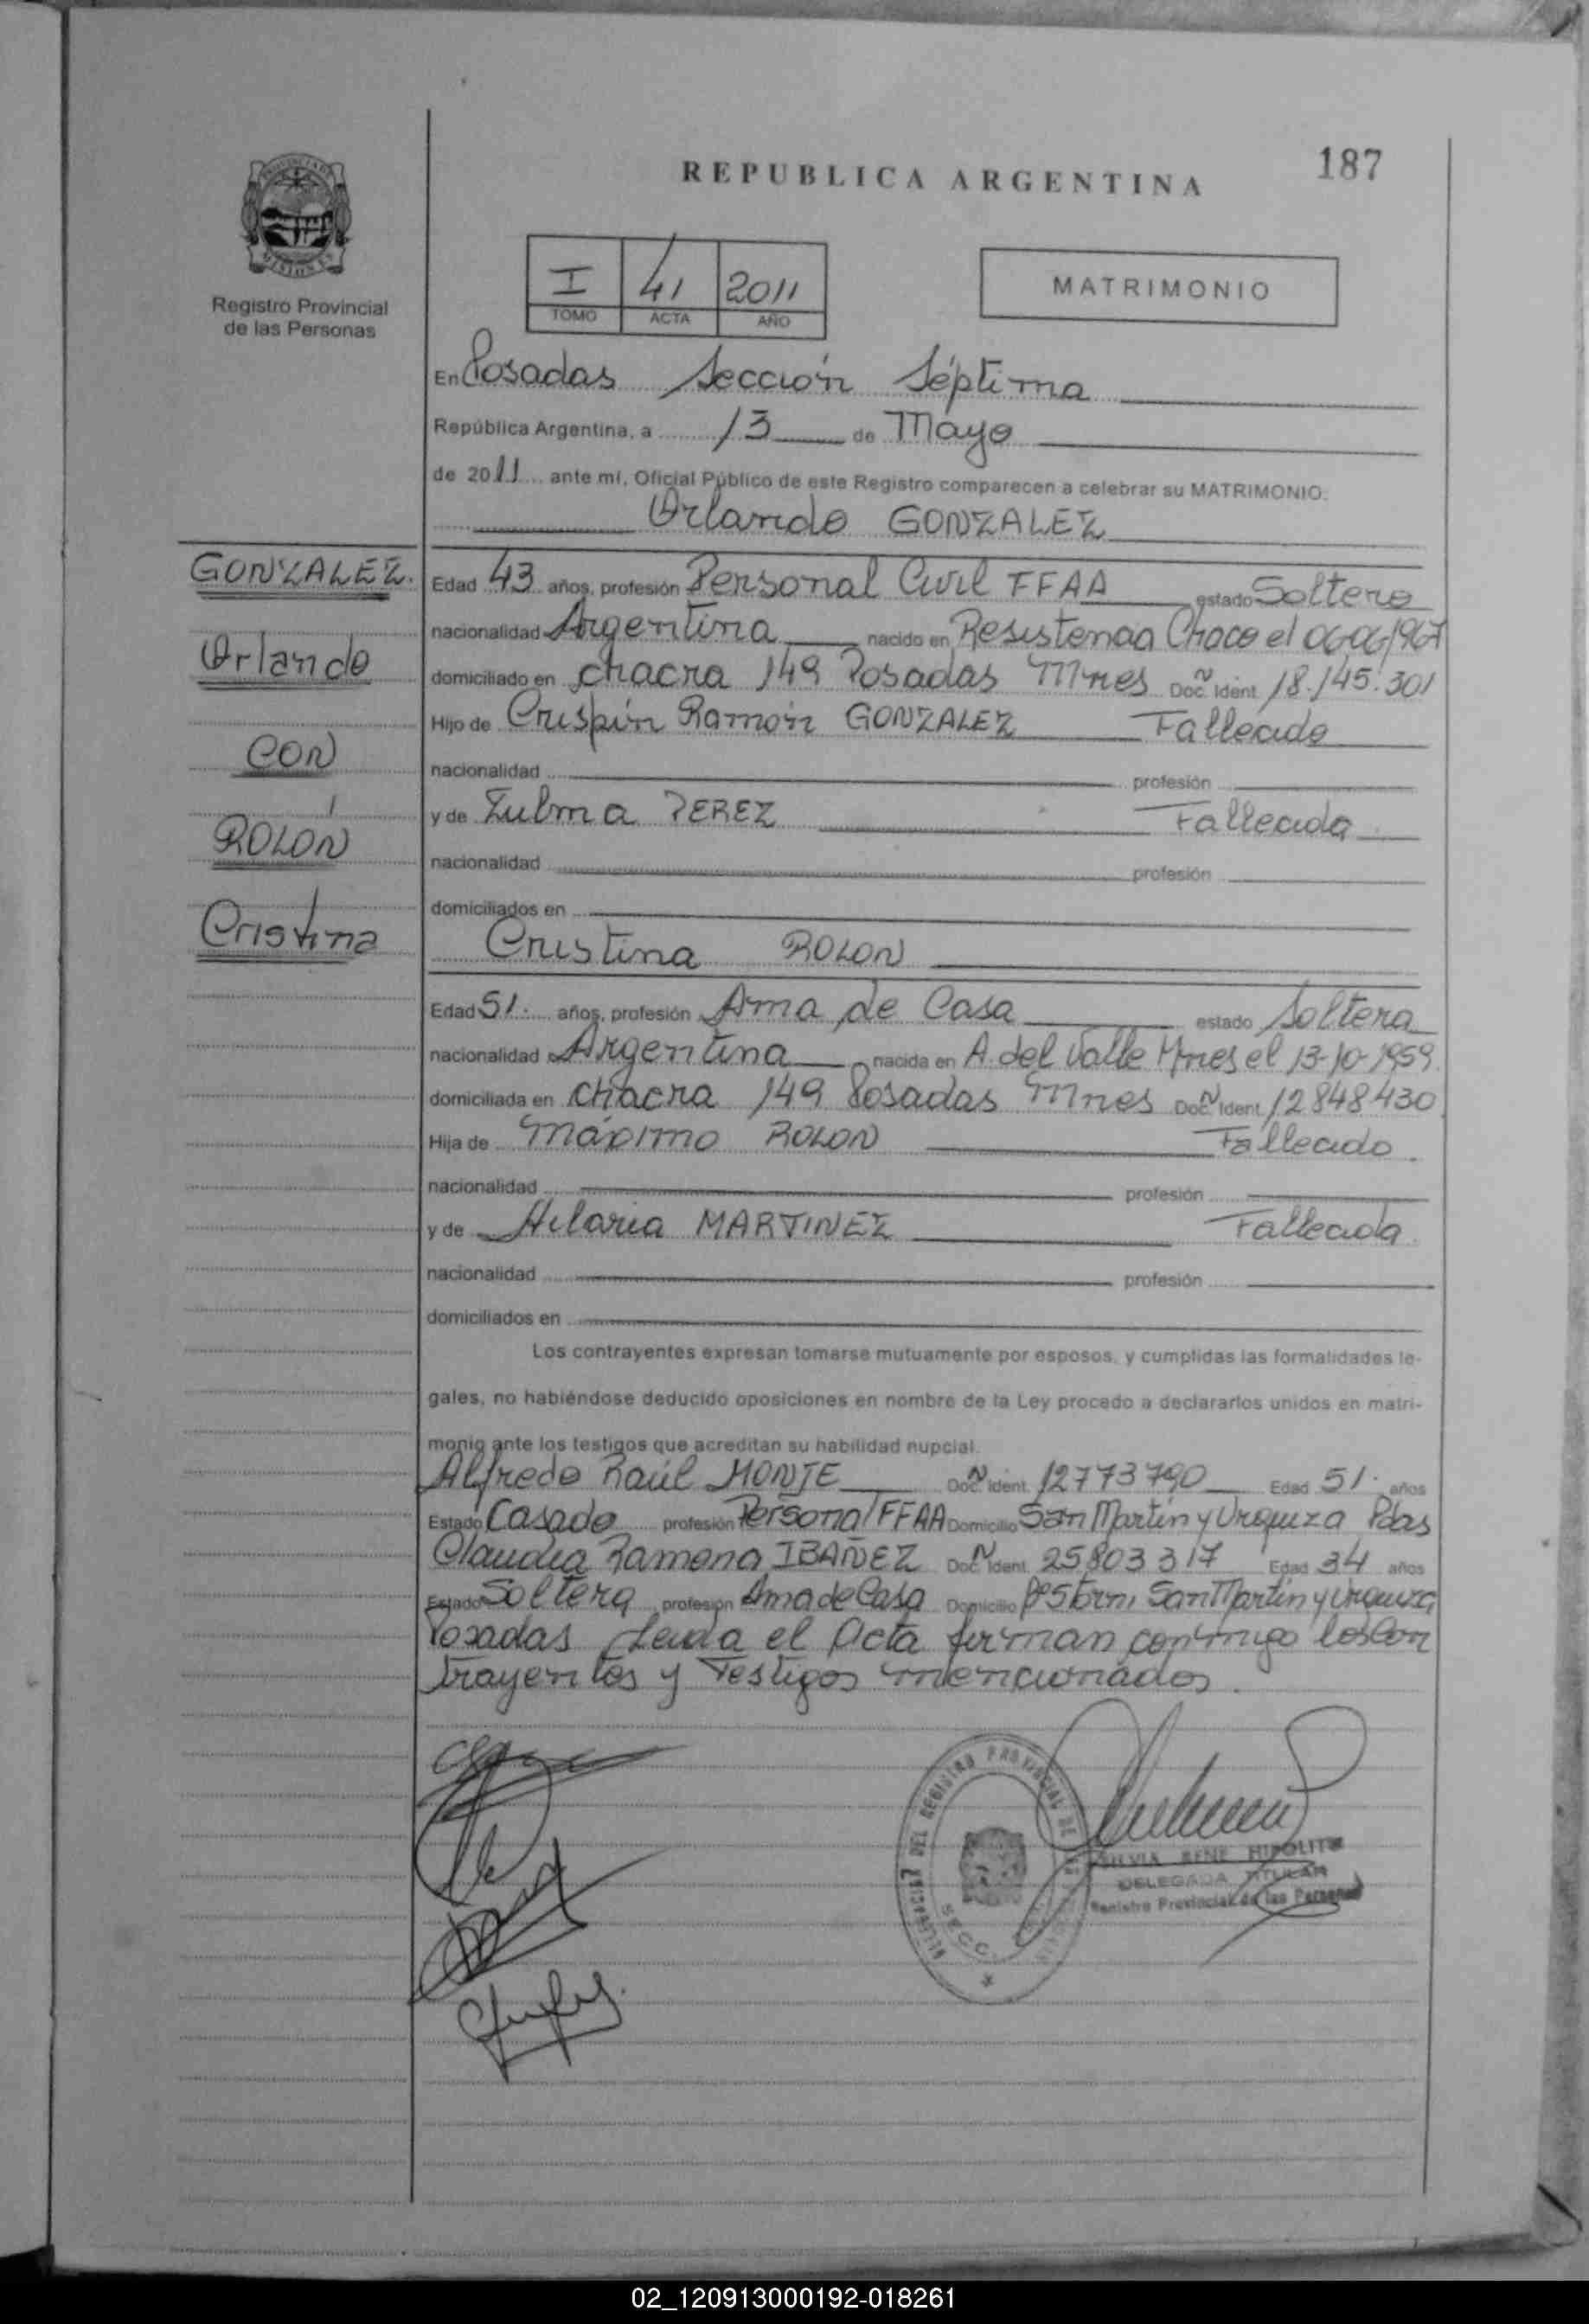 187
REPUBLICA ARGENTINA
PROVINCIA DE
MISIONES
Registro Provincial
de las Personas
I 41 2011
TOMO ACTA AÑO
MATRIMONIO
En Posadas Sección Séptima
República Argentina, a 13 de Mayo
de 2011 ante mí, Oficial Público de este Registro comparecen a celebrar su MATRIMONIO:
Orlando GONZALEZ
GONZALEZ.
Orlando
CON
ROLÓN
Cristina
Edad 43 años, profesión Personal Civil FFAA estado Soltero
nacionalidad Argentina nacido en Resistencia Chaco el 06-06/967
domiciliado en chacra 149 Posadas Mnes Doc. Ident. 18.145.301
Hijo de Crispín Ramón GONZALEZ Fallecido
nacionalidad profesión
y de Zulma PEREZ Fallecida
nacionalidad profesión
domiciliados en
Cristina ROLON
Edad 51. años, profesión Ama de Casa estado Soltera
nacionalidad Argentina nacida en A. del Valle Mnes el 13-10-1959.
domiciliada en chacra 149 Posadas Mnes Doc. Ident. 12848430
Hija de Máximo ROLON Fallecido.
nacionalidad profesión
y de Hilaria MARTINEZ Fallecida.
nacionalidad profesión
domiciliados en
Los contrayentes expresan tomarse mutuamente por esposos, y cumplidas las formalidades le-
gales, no habiéndose deducido oposiciones en nombre de la Ley procedo a declararlos unidos en matri-
monio ante los testigos que acreditan su habilidad nupcial.
Alfredo Raúl MONJE Doc. Ident. 12773790 Edad 51. años
Estado Casado profesión Personal FFAA Domicilio San Martín y Urquiza Pdas
Claudia Ramona IBAÑEZ Doc. Ident. 25803317 Edad 34 años
Estado Soltera profesión Ama de Casa Domicilio San Martín y Urquiza
Posadas Leída el Acta firman conmigo los con
trayentes y Testigos mencionados.
DELEGACION DEL REGISTRO PROVINCIAL DE LAS
SECC.
SILVIA RENE HIPOLITO
DELEGADA TITULAR
Registro Provincial de las Personas
02_120913000192-018261